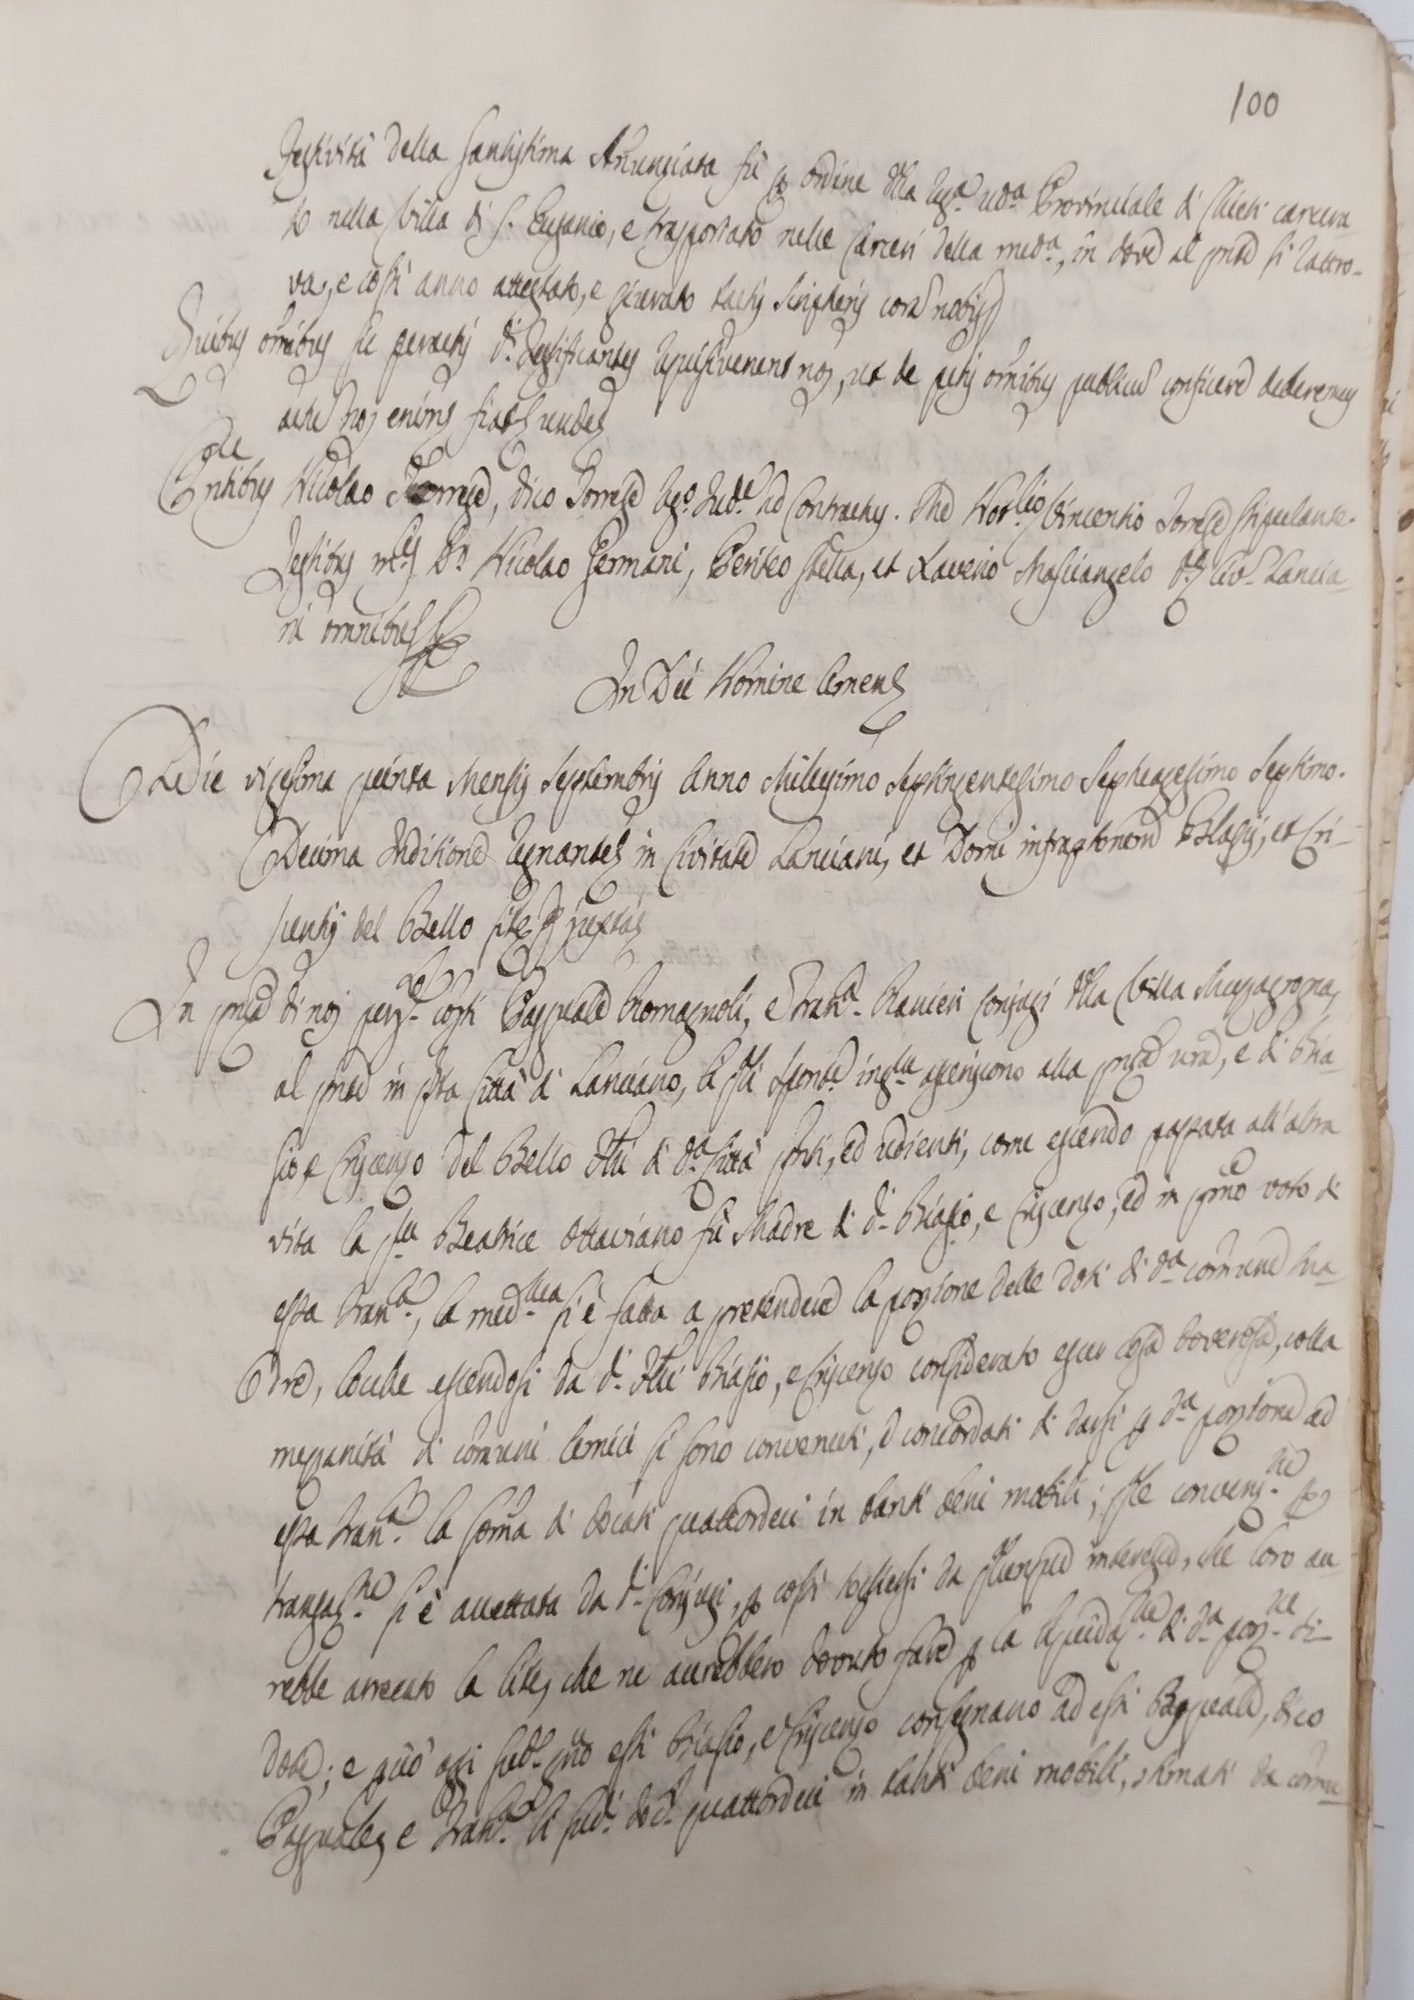 100
Festività della Santissima Annunziata fù p ordine d'lla Rega. Uda. Provinciale di Chieti carcera
to nella Villa di S. Eusanio, e trasportato nelle Carceri della meda., in dove al pnte si ratro-
va, e cossì anno attestato, e giurato tactis scripturis cora nobis
Quibus omnibus sic peractis di. testificantes requisiverunt nos, ut de pctis omnibus publicu conficere deberemus
actu nos enim fiat unde
Pntibus Nicolao Torrese, dico Torrese Rego. Iude. ad Contractus. Me Notlio Vincentio Torrese stipulante.
Testibus mcis Dr. Nicolao Germani, Penteo Stella, et Xaverio Masciangelo ds. Civs. Lancia-
ni omnibus
In Dei Nomine Amen
Die vigesima quinta Mensis Septembris Anno Millesimo Septingentesimo Septuagesimo Septimo.
Decima Inditione Regnante in Civitate Lanciani, et Domi infraptorum Blasij, et Cri-
scentij del Bello site in
In pnza di noi persle. costi Pasquale Romagnoli, e Frana. Ranieri Coniugi d'lla Villa Mozzagrogna,
al pnte in qsta Città di Lanciano, li qli sponte. ingla. aseriscono alla pnza nra, e di Bia-
sio, e Criscenzo del Bello f'lli di da. Città pnti, ed udienti, come essendo passata all'altra
vita la qm. Beatrice Ottaviano fù Madre di di. Biasio, e Criscenzo, ed in pmo voto di
essa Frana., la medma. si è fatta a pretendere la porzione delle doti di da. comune Ma-
dre, locche essendosi da di. f'lli Biasio, e Criscenzo considerato esser cosa doverosa, colla
mezzanità di comuni Amici si sono convenuti, e concordati di darsi p da. porzione ad
essa Frana. la soma di docati quattordeci in tanti beni mobili; qle convenzne.
transazne. si è accettata da di. Coniugi, p cossì togliersi da qlunque interesse, che loro au-
rebbe arrecato la lite, che ne aurebbero dovuto fare p la liquidazne. di da. porne. di
dote; e quo oggi sudo. gno essi Biasio, e Criscenzo consegnano ad essi Pasquale, dico
Pasquale, e Frana. li sudi. doci. quattordeci in tanti beni mobili, stimati da comu-